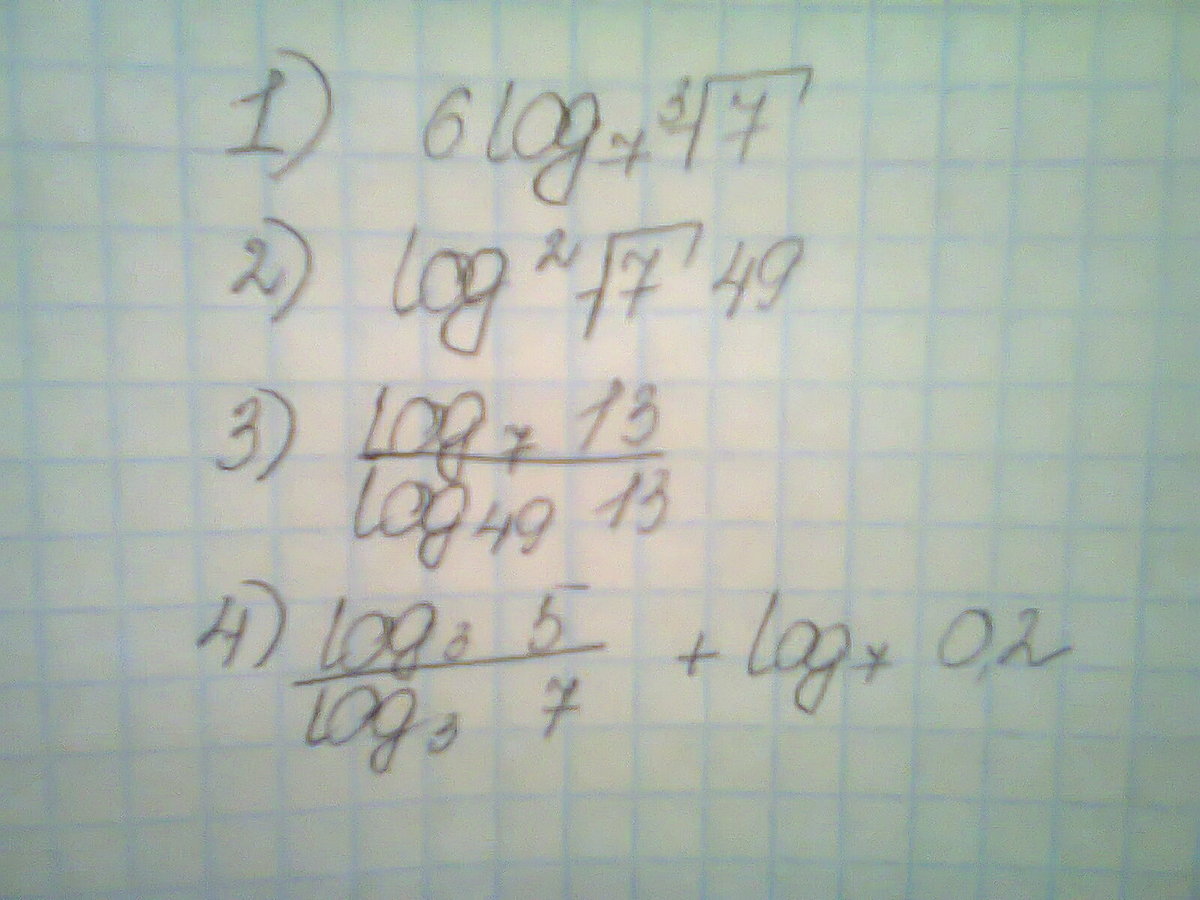 1) 6 log₇ ³√7
2) log ²√7 49
3) log₇ 13
log₄₉ 13
4) log₃ 5 + log₇ 0,2
log₃ 7